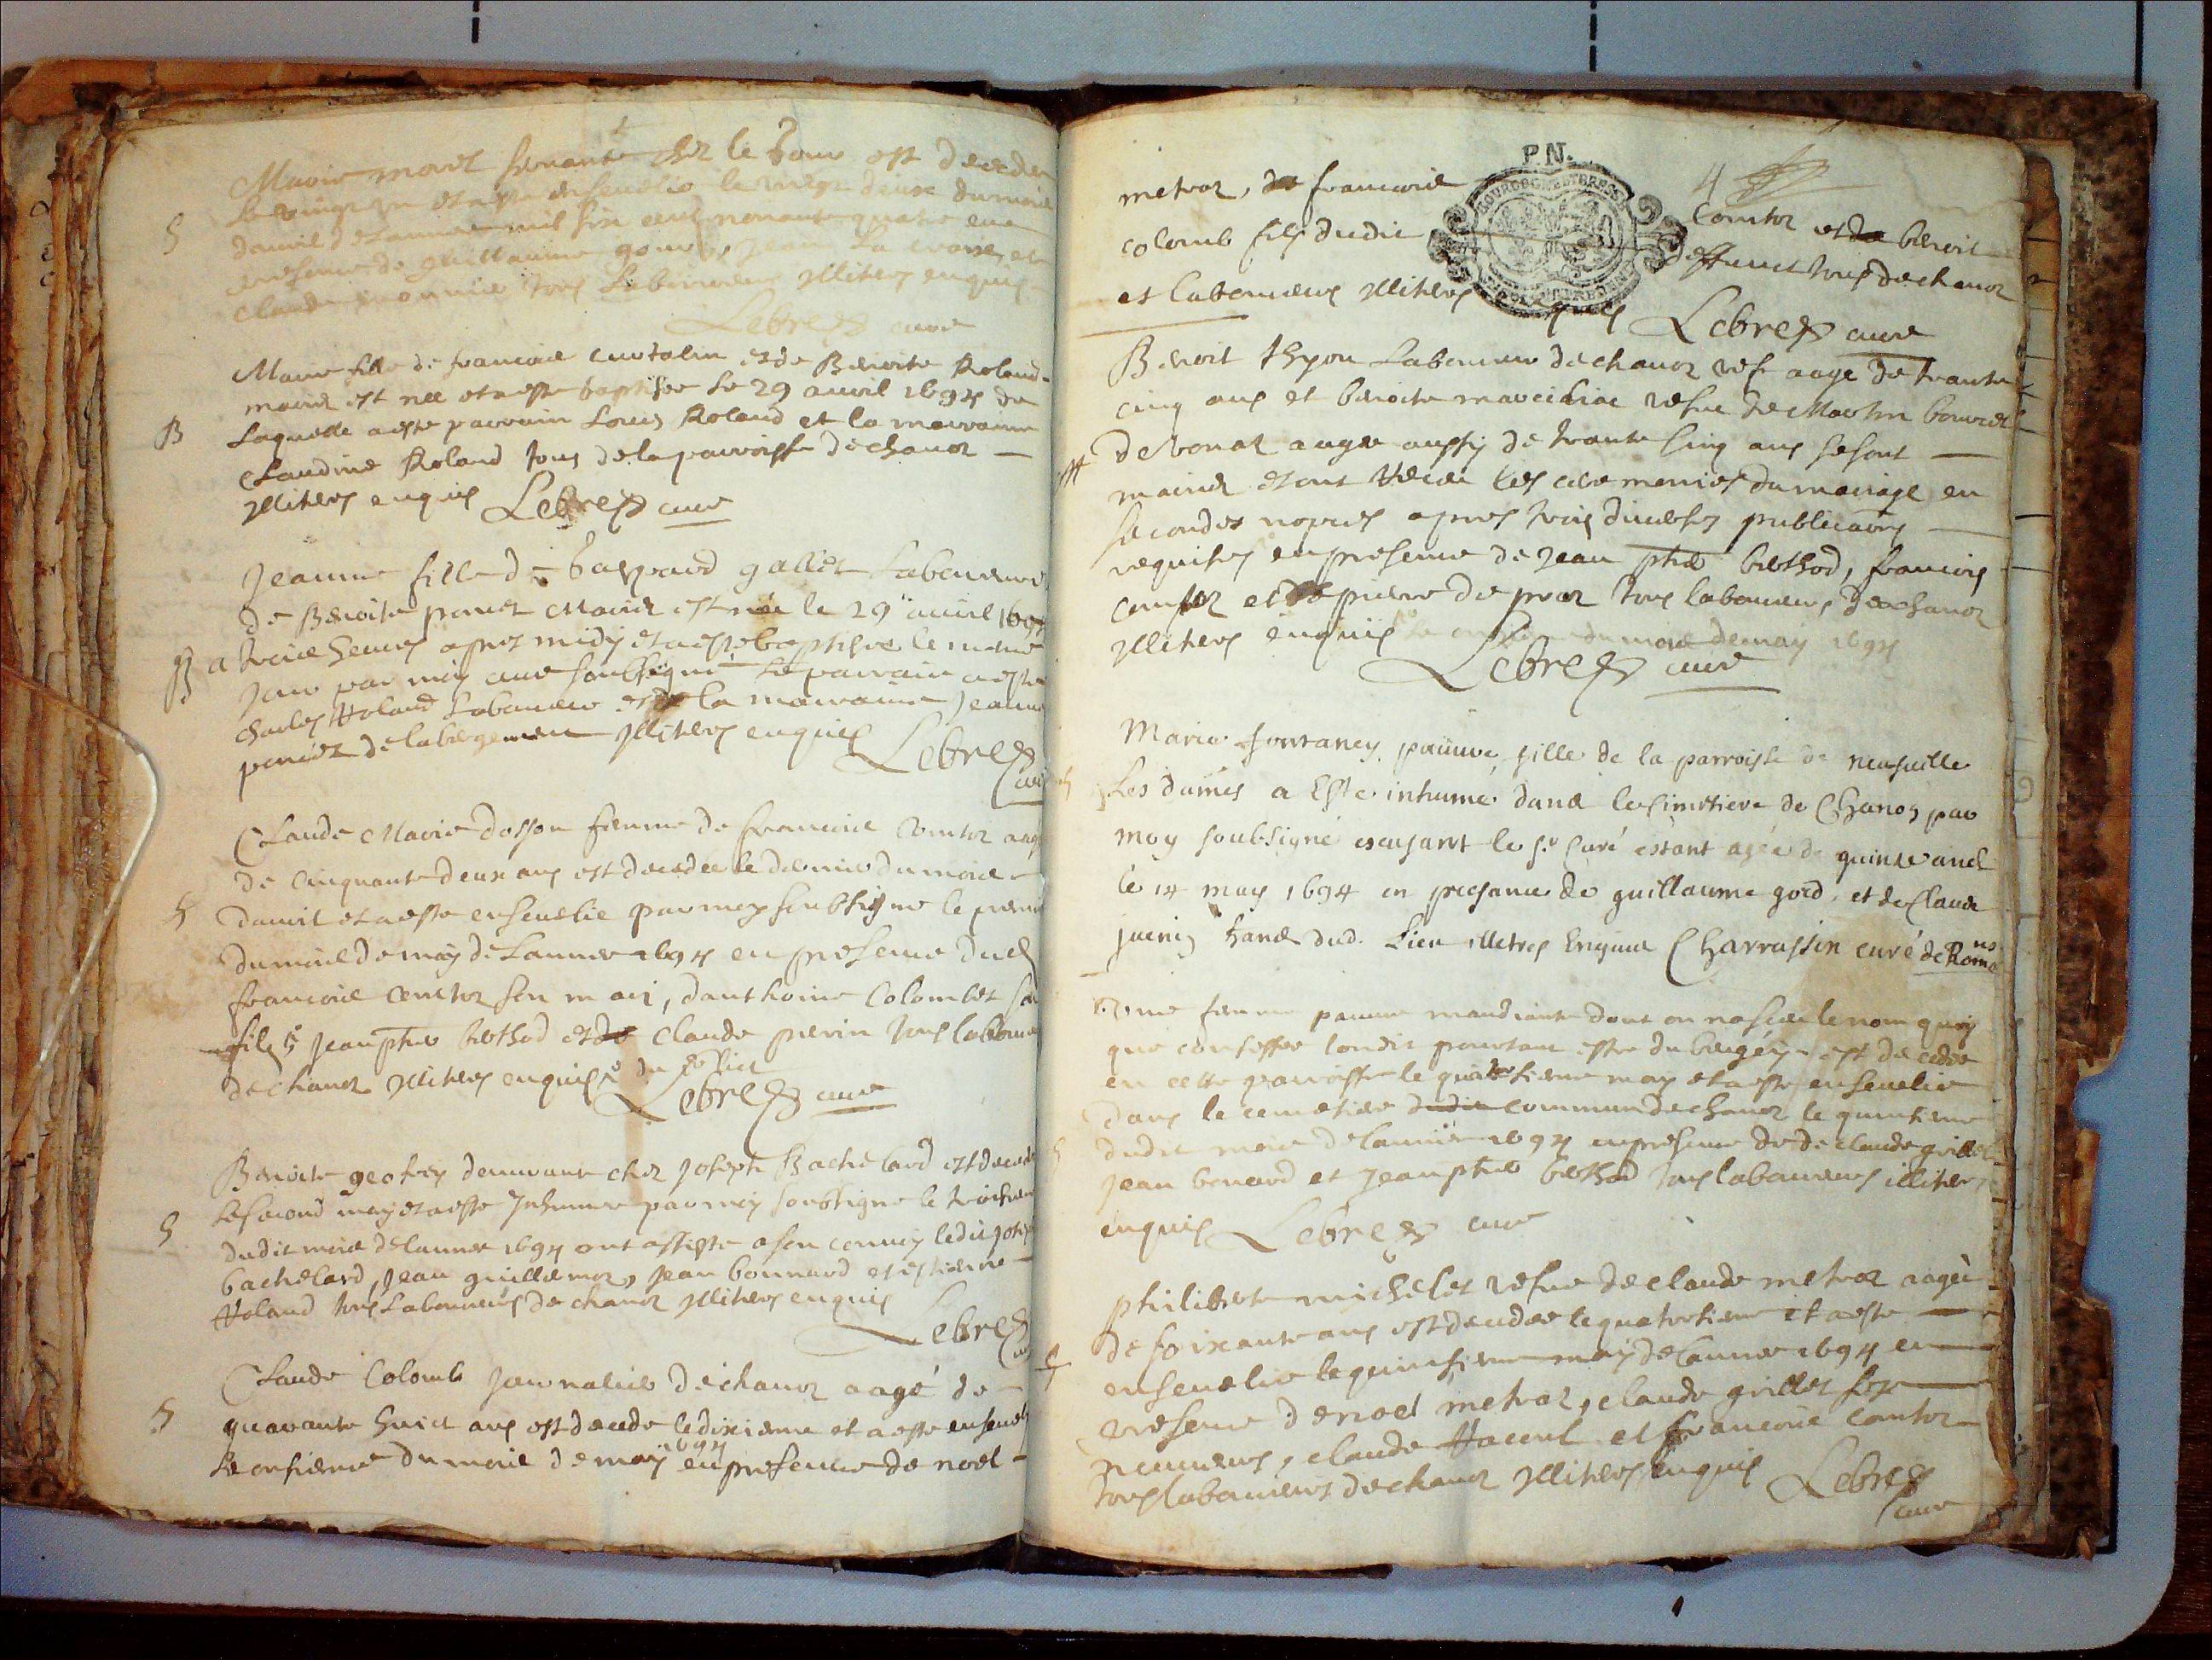 Marie morel servante chez le est decedee
Le vingt un et a este ensevelie le vingt deux du mois
davril de lannee mil six cent nonante quatre en
presence de guillaume gour
Claude tous Laboureurs Illiteres enquis
Lebrez curé
Marie fille de francois curtalin et de Benoite Roland
mariés est née et a este baptisee le 29 avril 1694 de
B Laquelle a este parrain Louis Roland et la marraine
Claudine Roland tous de la parroisse de chanoz
Illiteres enquis Lebrez curé
Jeanne fille de gaspard gallet Laboureur
de Benoite ponet Mariés est née le 29 avril 1694
B a trois heures apres midy et a este baptisee le mesme
Jour par moy curé soubsigné Le parrain a este
charles Roland Laboureur et la marraine Jeanne
ponet de labergement Illiteres enquis
Lebrez
curé
Claude Marie dosson femme de francois Comtoz aagée
de cinquante deux ans est decedée le dernier du mois
S davril et a este ensevelie par moy soubsigné le premier
du mois de may de Lannee 1694 en presence dud
francois comtoz son mari, danthoine Colomb et son
fils Jean phe berthod et de claude perin tous laboureurs
de chanoz Illiteres enquis
Lebrez curé
Benoite geofray demeurant chez Joseph Bachelard est decedée
Le second may et a este Inhumée par moy soubsigné le troisieme
S dudit mois de lannee 1694 ont assisté a son convoy ledit Joseph
bachelard, Jean guillemoz, Jean bonnard et estienne
Roland tous Laboureurs de chanoz Illiteres enquis
Lebrez
Claude Colomb Journalier de chanoz aagé de
S quarante huict ans est decedé le dixieme et a este ensevely
Le onsieme du mois de may 1694 en presence de noel
P.N.
BOURGOGNE ET BRESSE
4
metraz, de francois Comtoz et de benoit
colomb fils dudit deffunct tous de chanoz
et Laboureurs Illiteres enquis Lebrez curé
Benoit thyon Laboureur de chanoz vef aagé de trante
cinq ans et benoite vefue de Martin bouvret
de vonas aagée aussy de trante cinq ans se sont
mariés et ont receu les ceremonies du mariage en
secondes nopces apres trois diverses publications
requises en presence de Jean phe berthod, francois
comtoz et de pierre de tous laboureurs de chanoz
Illiteres enquis le du mois de may 1694
Lebrez curé
Marie fontaney pauure fille de la parroisse de neufuille
Les dames a Esté inhumé dans le Cimetiere de Chanoz par
moy soubsigné escusant le sr Curé estant agée de quinze ans
le 14 may 1694 en presance de guillaume gord, et de Claude
juenin hans dud. Lieu illetres Enquis Charrassin curé de Romans
Une femme pauure mandiante dont on na sceu le nom quoy
que confessee londit pourtant estre du bugey est decedee
en cette parroisse le quatorsieme may et a este ensevelie
dans le cemetiere dudit commun de chanoz le quinsieme
dudit mois de lannée 1694 en presence de de claude grillet
Jean benard et Jean phe berthod tous laboureurs illiteres
enquis Lebrez curé
philiberte michelet vefue de claude metraz aagée
de soixante ans est decedee le quatorsieme et a este
S ensevelie le quinsieme may de lannee 1694 en
presence de noel metraz, claude grillet ses
neveux, claude et francois Comtoz
tous laboureurs de chanoz Illiteres enquis Lebrez
curé